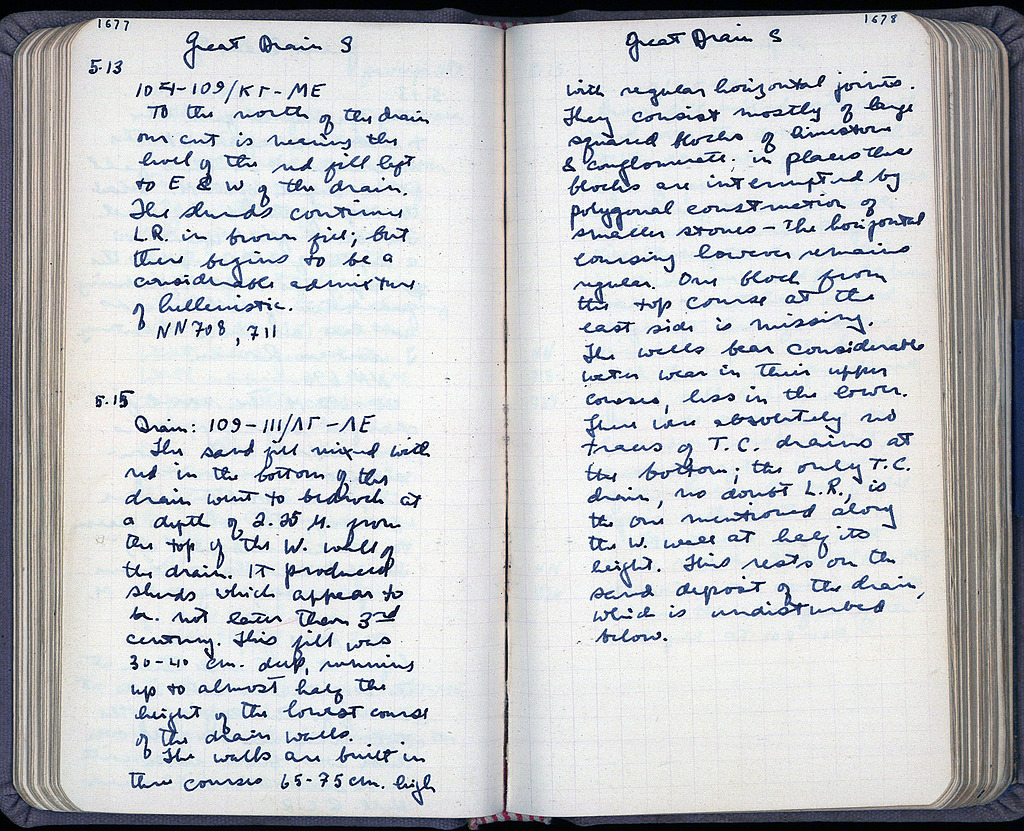 1677
Great Drain S
5.13
104-109/ΚΓ-ΜΕ
To the north of the drain
our cut is nearing the
level of the red fill left
to E & W of the drain.
The sherds continue
L.R. in brown fill; but
there begins to be a
considerable admixture
of hellenistic.
NN 708, 711
5.15
Drain: 109-111/ΛΓ-ΛΕ
The sand fill mixed with
red in the bottom of the
drain went to bedrock at
a depth of 2.25 M. from
the top of the W. wall of
the drain. It produced
sherds which appear to
be not later than 3rd
century. This fill was
30-40 cm. deep, running
up to almost half the
height of the lowest course
of the drain walls.
The walls are built in
three courses 65-75 cm. high
1678
Great Drain S
with regular horizontal joints.
They consist mostly of large
squared blocks of limestone
& conglomerate; in places these
blocks are interrupted by
polygonal construction of
smaller stones - the horizontal
coursing however remains
regular. One block from
the top course at the
east side is missing.
The walls bear considerable
water wear in their upper
courses, less in the lower.
There are absolutely no
traces of T.C. drains at
the bottom; the only T.C.
drain, no doubt L.R., is
the one mentioned along
the W. wall at half its
height. This rests on the
sand deposit of the drain,
which is undisturbed
below.